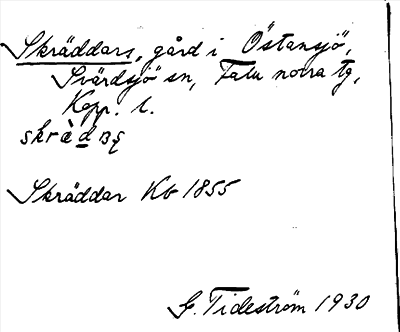 Skräddars, gård i Östansjö,
Svärdsjö sn, Falu norra tg,
Kopp. l.
Skräddar Kb 1855
G. Tideström 1930